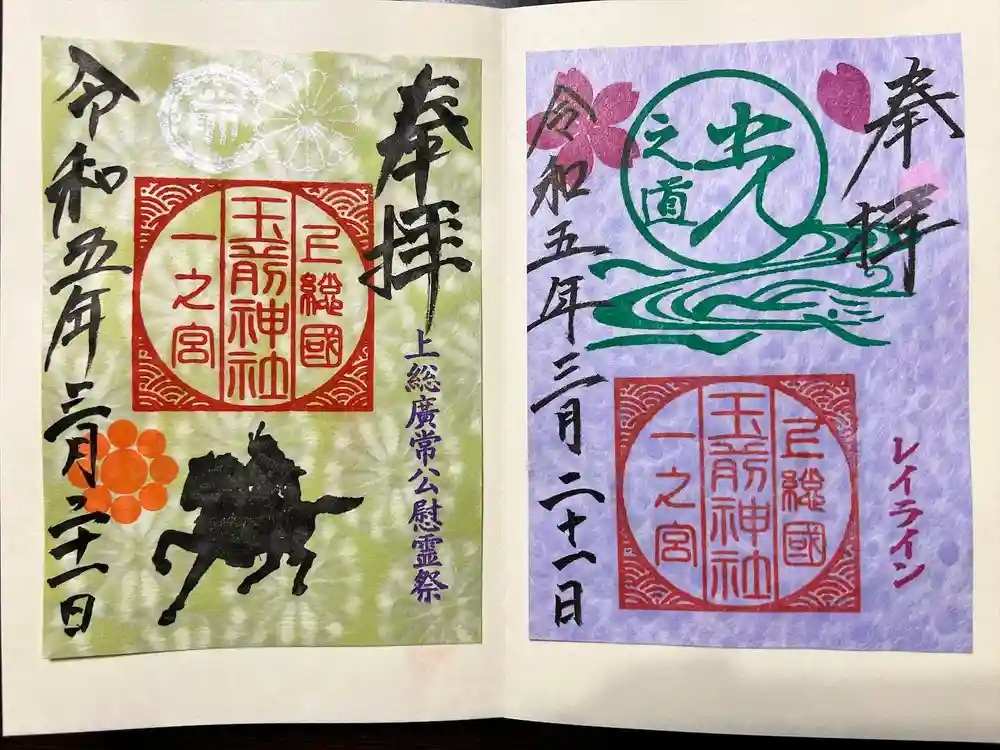 奉拝
上総廣常公慰霊祭
上総國
玉前神社
一之宮
令和五年三月二十一日
奉拝
レイライン
光
之道
上総國
玉前神社
一之宮
令和五年三月二十一日